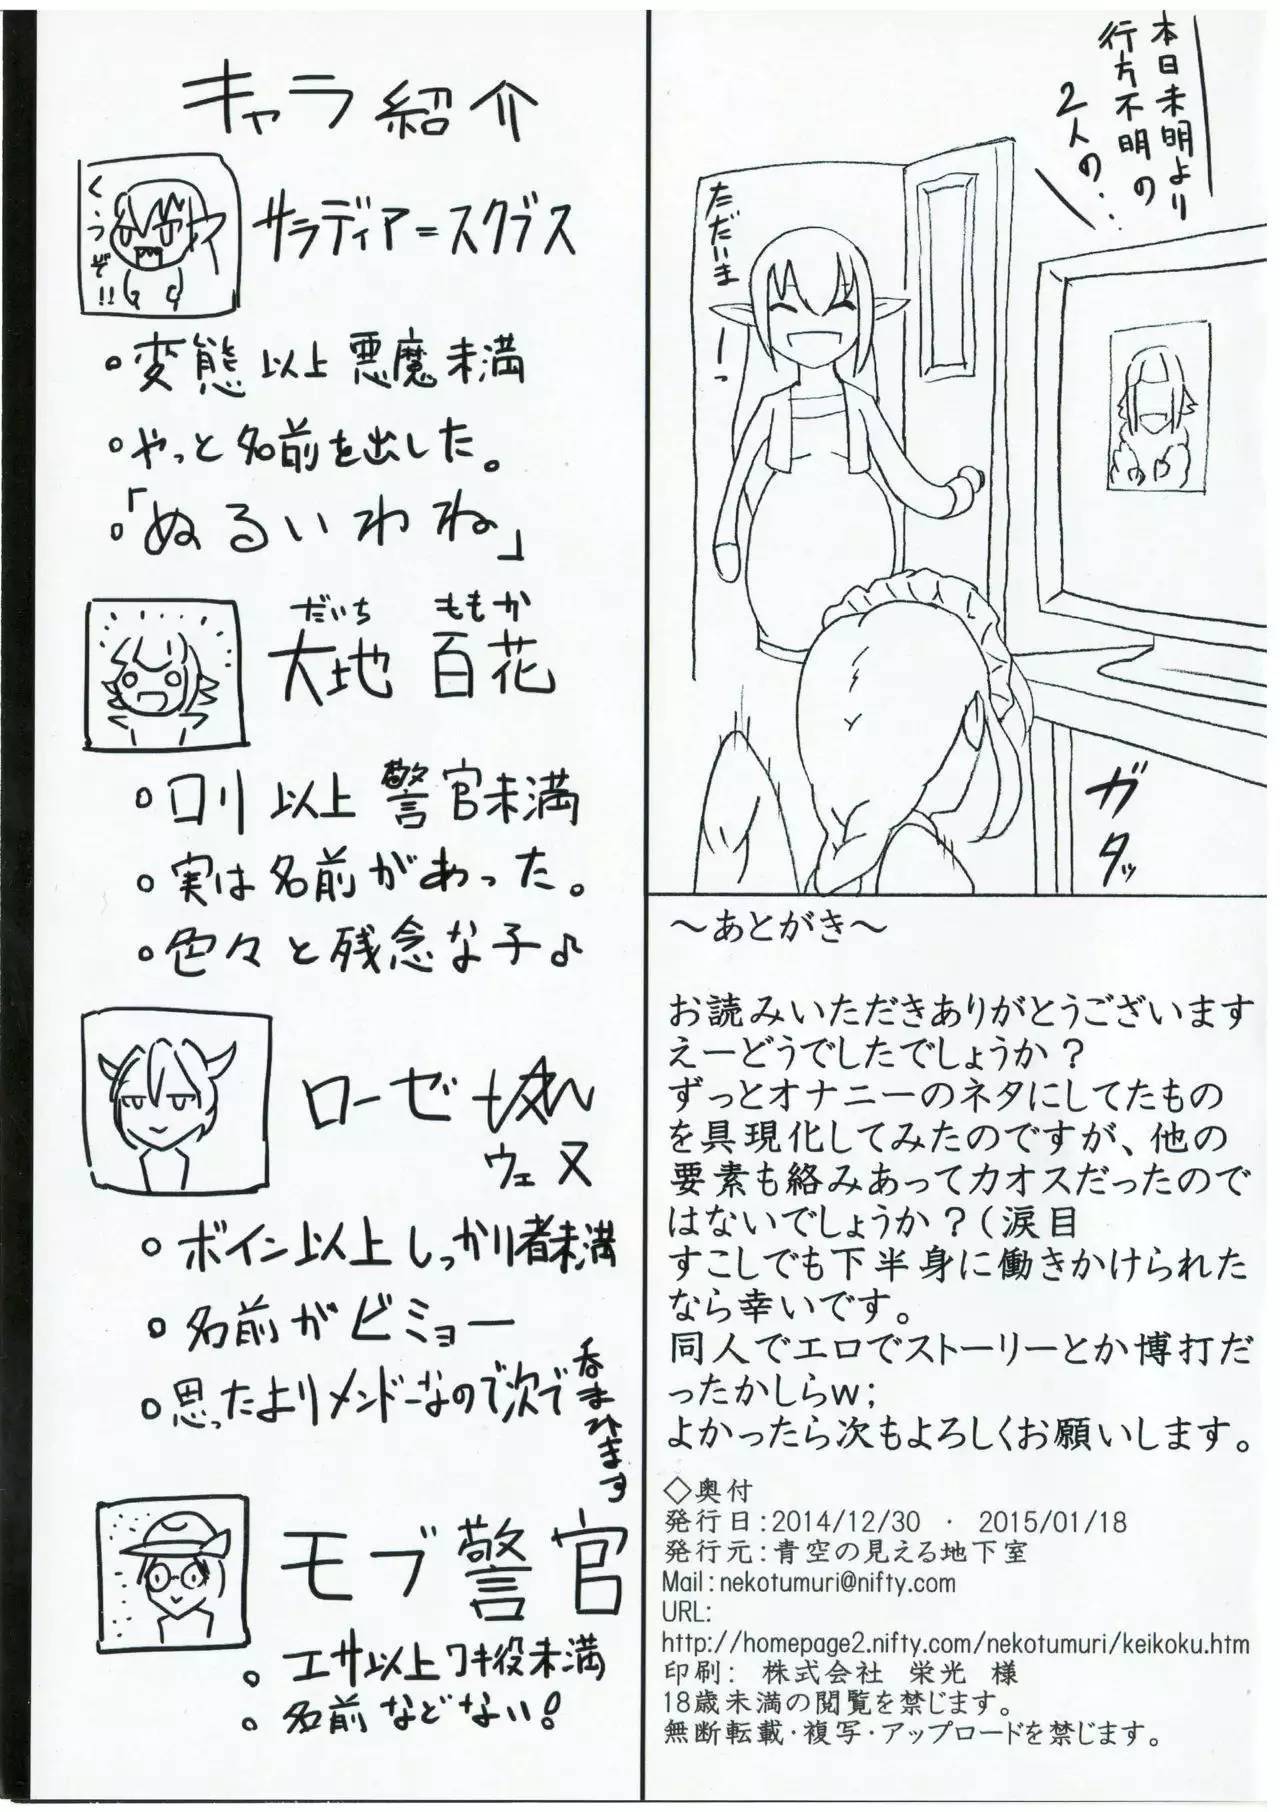 本日未明より
行方不明の
2人の…
ただいまーっ
ガタッ
～あとがき～
お読みいただきありがとうございます
えーどうでしたでしょうか？
ずっとオナニーのネタにしてたもの
を具現化してみたのですが、他の
要素も絡みあってカオスだったので
はないでしょうか？（涙目
すこしでも下半身に働きかけられた
なら幸いです。
同人でエロでストーリーとか博打だ
ったかしらｗ；
よかったら次もよろしくお願いします。
◇奥付
発行日：2014/12/30 ・ 2015/01/18
発行元：青空の見える地下室
Mail：nekotumuri@nifty.com
URL:
http://homepage2.nifty.com/nekotumuri/keikoku.htm
印刷： 株式会社 栄光 様
18歳未満の閲覧を禁じます。
無断転載・複写・アップロードを禁じます。
キャラ紹介
くうぞ!!
サラディア=スクブス
。変態以上悪魔未満
。やっと名前を出した。
。「ぬるいわね」
だいち ももか
大地 百花
。ロリ以上 警官未満
。実は名前があった。
。色々と残念な子♪
ローゼ
ウェヌ
。ボイン以上しっかり者未満
。名前がビミョー
。思ったよりメンドーなので次で
呑まれます
モブ警官
。エサ以上ワキ役未満
。名前などない!